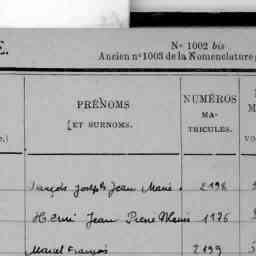 E.
No 1002 bis
Ancien no 1003 de la Nomenclature
PRÉNOMS
ET SURNOMS.
NUMÉROS
MA-
TRICULES.
François Joseph Jean Marie. 2198
Henri Jean Pierre 1176
Marcel François 2199